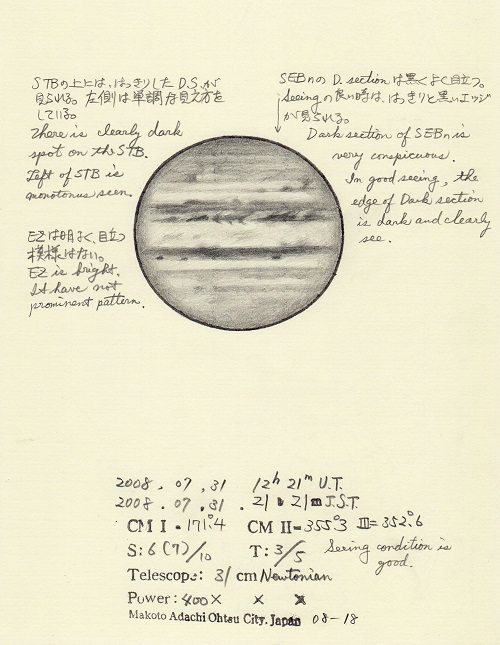 STBの上には、はっきりしたD.S.が
見られる。左側は単調な見え方を
している。
There is clearly dark
spot on the STB.
Left of STB is
monotonus seen.
EZは明るく、目立つ
模様はない。
EZ is bright.
It have not
prominent pattern.
SEBnのD.sectionは黒くよく目立つ。
Seeingの良い時は、はっきりと黒いエッジ
が見られる。
Dark section of SEBn is
very conspicuous.
In good seeing, the
edge of Dark section
is dark and clearly
see.
2008.07.31 12h 21m U.T.
2008.07.31. 21h 21m J.S.T.
CM I = 171°.4 CM II = 355°.3 III = 352°.6
S: 6(7)/10 T: 3/5 Seeing condition is
good.
Telescope: 31 cm Newtonian
Power: 400× × ×
Makoto Adachi Ohtsu City. Japan 08-18